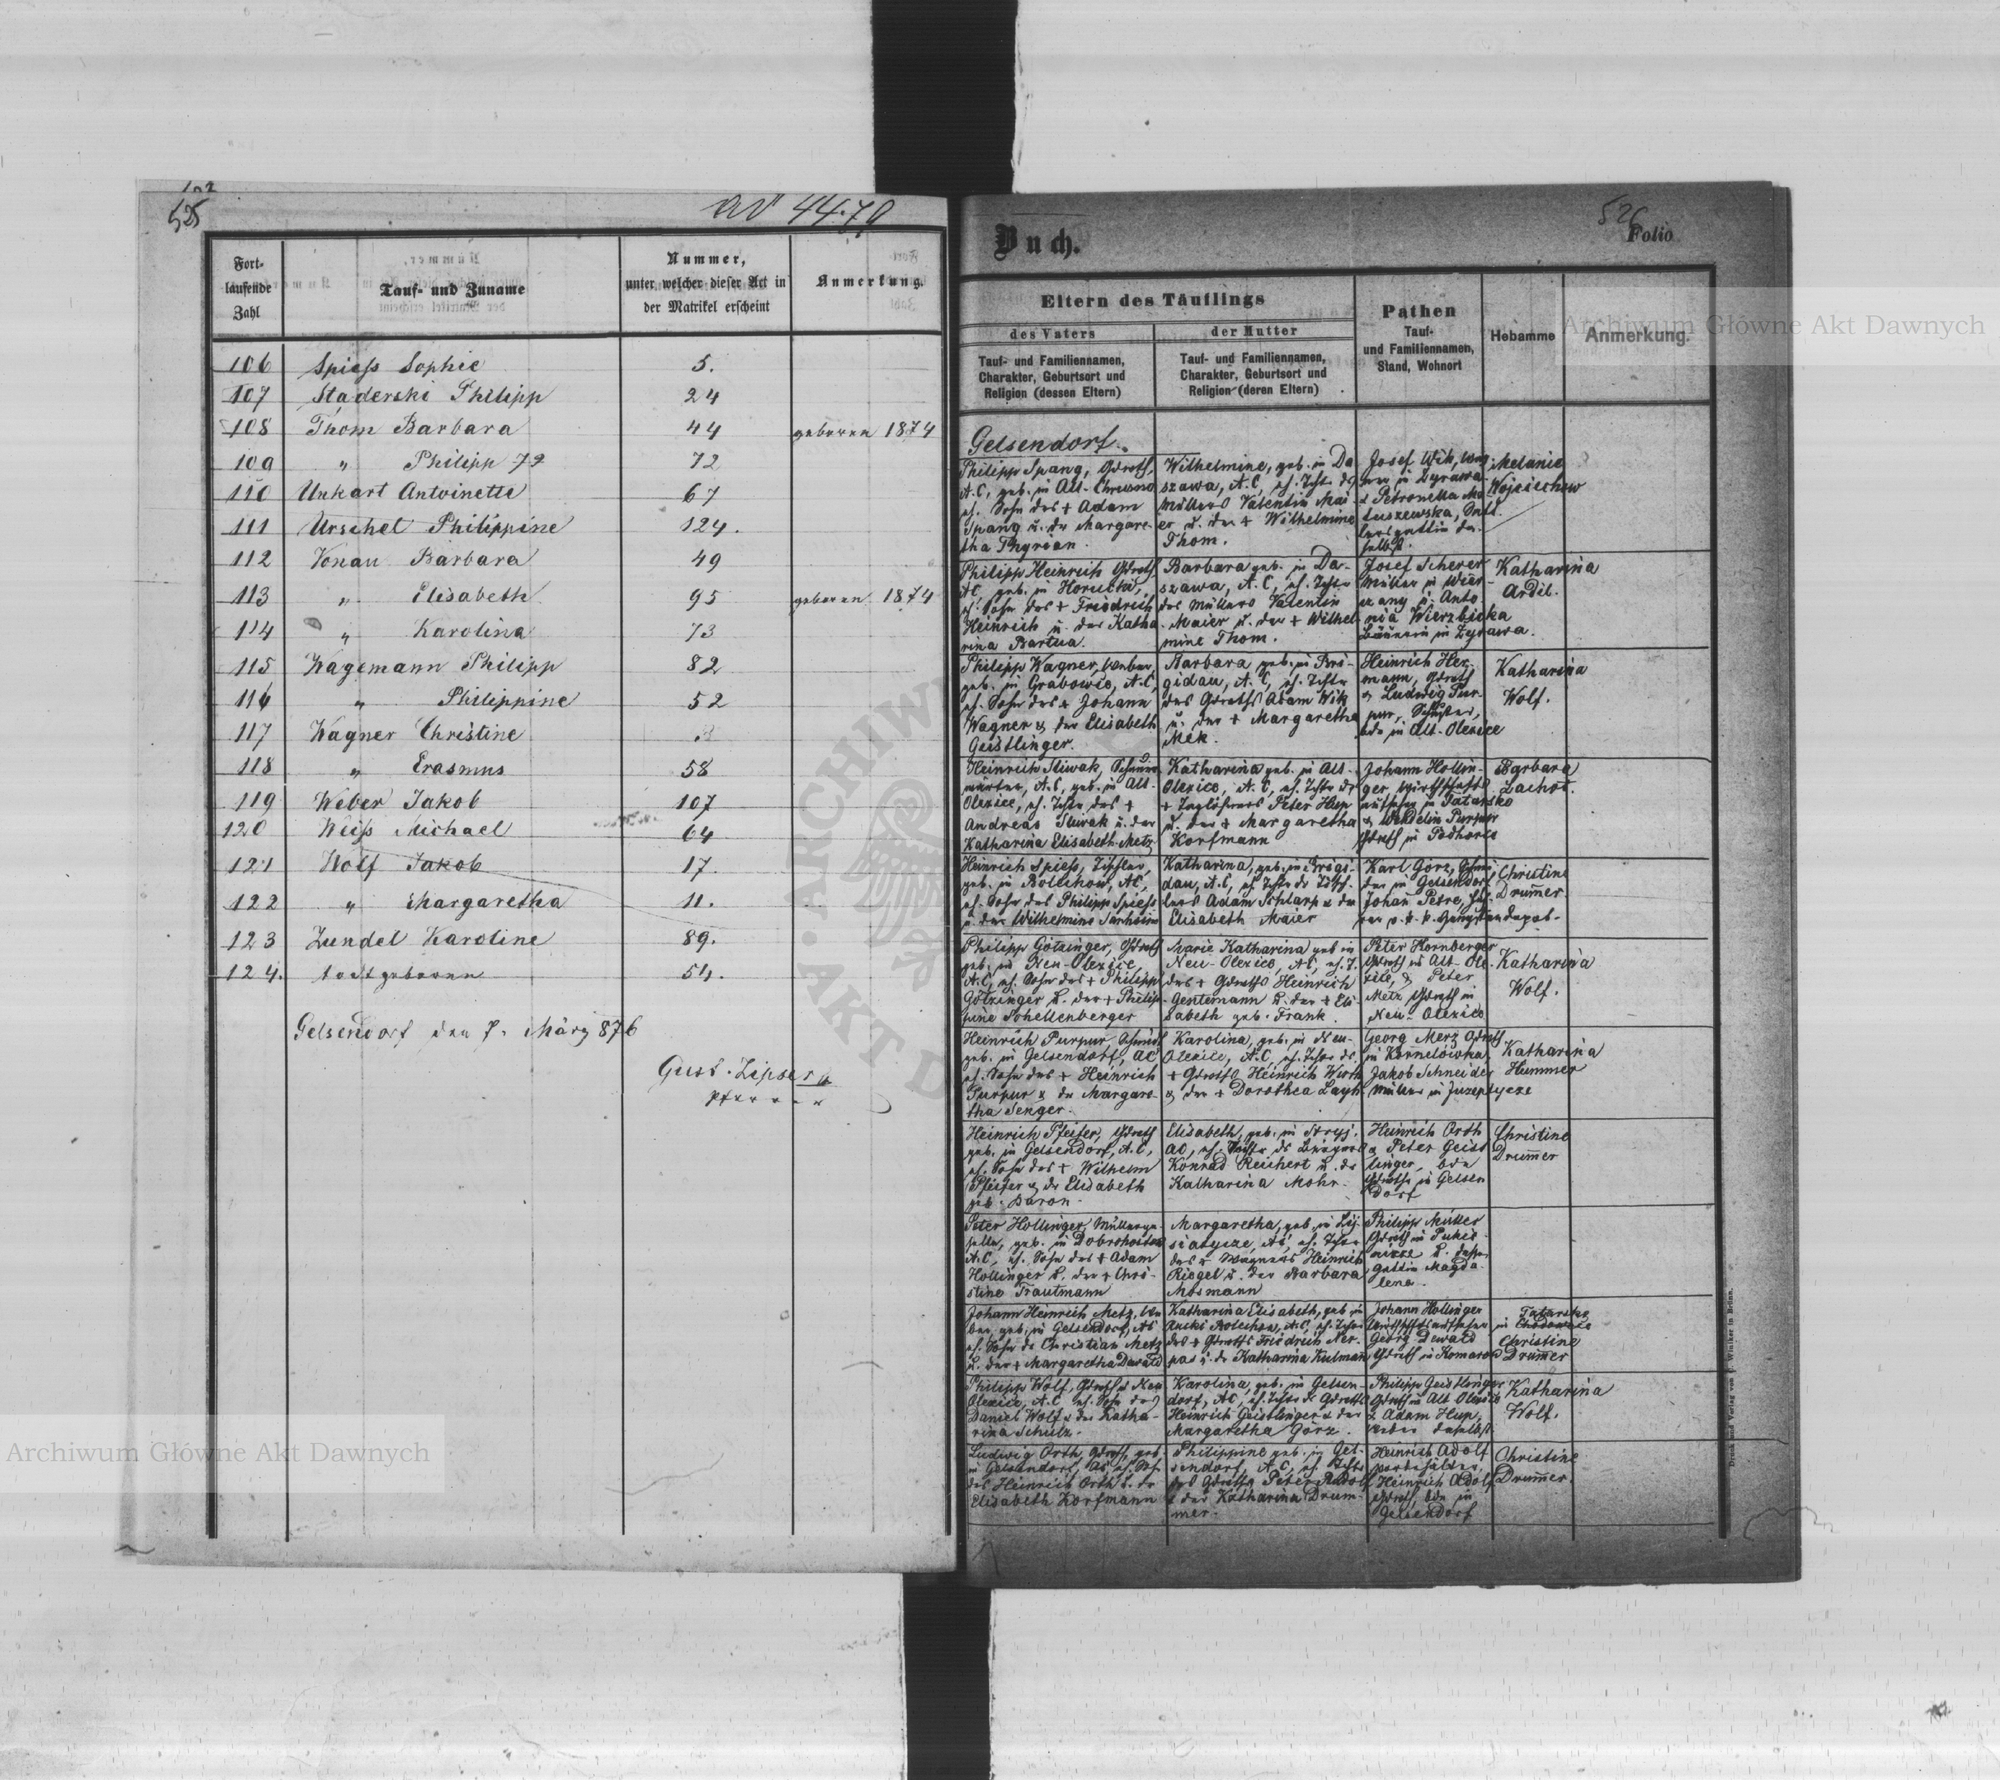 525
ad 44.79
Fort-
laufende
Zahl
Tauf- und Zuname
Nummer,
unter welcher dieser Act in
der Matrikel erscheint
Anmerkung.
106 Spiess Sophie 5.
107 Staderski Philipp 24
108 Thom Barbara 44 geboren 1874
109 " Philipp 72
110 Unkart Antoinette 67
111 Urschel Philippine 124.
112 Vonau Barbara 49
113 " Elisabeth 95 geboren 1874
114 " Karolina 73
115 Wagemann Philipp 82
116 " Philippine 52
117 Wagner Christine
118 " Erasmus 58
119 Weber Jakob 107
120 Weiss Michael 64
121 Wolf Jakob 17.
122 " Margaretha 11.
123 Zundel Karoline 89.
124. todtgeboren 54.
Gelsendorf den 7. März 876
Gust. Zipser
Pfarrer
526
Buch.
Folio
Eltern des Täuflings
des Vaters
der Mutter
Tauf- und Familiennamen,
Charakter, Geburtsort und
Religion (dessen Eltern)
Tauf- und Familiennamen,
Charakter, Geburtsort und
Religion (deren Eltern)
Pathen
Tauf-
und Familiennamen,
Stand, Wohnort
Hebamme
Anmerkung.
Gelsendorf.
Philipp Spang, Gdrth,
A.C, geb. in Alt-
eh. Sohn des + Adam
Spang u. der Margare-
tha Thyrian.
Wilhelmine, geb. in Da
szawa, A.C, eh. Tchtr ds
Müllers Valentin Mai-
er u. der + Wilhelmine
Thom.
Josef Wik,
in Zyrawa
& Petronella Ma-
tuszewska,
gattin da-
selbst.
Melanie
Wojciechow
Philipp Heinrich Gdrth,
AC, geb. in
eh. Sohn des + Friedrich
Heinrich u. der Katha
rina Bartua.
Barbara geb. in Da-
szawa, A.C, eh. Tchtr
des Müllers Valentin
Maier u. der + Wilhel
mine Thom.
Josef Scherer
Müller in Wier-
czany u. Anto
nia Wierzbicka
Bäuerin in Zyrawa.
Katharina
Ardil.
Philipp Wagner, Weber,
geb. in Grabowic, A.C,
eh. Sohn des + Johann
Wagner & der Elisabeth
Geistlinger.
Barbara geb. in Bri-
gidau, A.C, eh. Tchtr
des Gdrths Adam Wik
u. der + Margaretha
Mek.
Heinrich Her-
mann, Gdrth
& Ludwig Pur-
pur, Schuster,
bde in Alt-Olexice
Katharina
Wolf.
Heinrich Sliwak,
A.C, geb. in Alt-
Olexice, eh. des +
Andreas Sliwak u. der
Katharina Elisabeth Metz
Katharina geb. in Alt-
Olexice, A.C, eh. Tchtr ds
+ Taglöhners Peter Hup
u. der + Margaretha
Korfmann
Johann Hollin-
ger, Wirthschafts
aufseher in Tatarsko
& Wendelin Purpur
Gdrth in Podhorce
Barbara
Lachot.
Heinrich Spiess, Tischler,
geb. in Bolechow, AC,
eh. Sohn des Philipp Spiess
u. der Wilhelmine
Katharina, geb. in Brigi-
dau, A.C, eh. Tchtr ds Tisch-
lers Adam Schlarp & der
Elisabeth Maier
Karl Görz,
in Gelsendorf,
Johan Petre,
Christine
Drummer
Philipp Götzinger, Gdrth
geb. in Neu-Olexice
A.C, eh. Sohn des + Philipp
Götzinger u. der + Philip-
pine Schellenberger
Marie Katharina geb in
Neu-Olexice, AC, eh. T.
des + Gdrths Heinrich
Gentemann u. der + Eli-
sabeth geb. Frank.
Peter Hornberger
Gdrth in Alt-Ole-
xice, & Peter
Metz Gdrth in
Neu-Olexice
Katharina
Wolf.
Heinrich Purpur,
geb. in Gelsendorf, AC
eh. Sohn des + Heinrich
Purpur & der Margare-
tha Senger.
Karolina, geb. in Neu-
Olexice, A.C, eh. Tchtr ds
+ Gdrths Heinrich Wirth
& der + Dorothea Layh
Georg Merz Gdrth
in Kornelowka,
Jakob Schneider
Müller in Juseptycze
Katharina
Hummer
Heinrich Pfeifer, Gdrth
geb. in Gelsendorf, A.C,
eh. Sohn des + Wilhelm
Pfeifer & der Elisabeth
geb. Baron.
Elisabeth, geb. in Stryj.
AC, eh. Tchtr ds
Konrad Reichert u. der
Katharina Mohr.
Heinrich Orth
& Peter Geist
linger, bde
Gdrth in Gelsen
dorf
Christine
Drummer
Peter Hollinger, Müllerge-
selle, geb. in Dobrohostow
A.C, eh. Sohn des + Adam
Hollinger u. der + Chri-
stine Trautmann
Margaretha, geb. in Lij-
siatycze, AC, eh. Tchtr
des + Wagners Heinrich
Riegel u. der Barbara
Mosmann
Philipp Müller
Gdrth in Pukie-
nicze u. dessen
Gattin Magda-
lena.
Johann Heinrich Metz, We
ber, geb. in Gelsendorf, AC
eh. Sohn ds Christian Metz
u. der + Margaretha Dewald
Katharina Elisabeth, geb in
Bolechow, AC, eh. Tchtr
des + Gdrths Friedrich Ner-
pas u. der Katharina Kulmann
Johann Hollinger
Wirthschftsaufseher
Georg Dewald
Gdrth in Komarow
Tatarsko
in
Christine
Drummer
Philipp Wolf, Gdrth in Neu
Olexice, A.C eh. Sohn des
Daniel Wolf & der Katha-
rina Schulz.
Karolina, geb. in Gelsen-
dorf, AC, eh. Tchtr ds Gdrths
Heinrich Geistlinger & der
Margaretha Görz.
Philipp Geistlinger
Gdrth in Alt Olexice
& Adam Hup,
Weber daselbst
Katharina
Wolf.
Ludwig Orth, Gdrth, geb.
in Gelsendorf, AC eh. Sohn
des Heinrich Orth u. der
Elisabeth Korfmann
Philippine geb. in Gel-
sendorf, A.C, eh. Tchtr
des Gdrths Peter Rudolf
& der Katharina Drum-
mer.
Heinrich Adolf
Heinrich Adolf
Gdrth, bde in
Gelsendorf
Christine
Drummer.
Druck und Verlag von C. Winiker in Brünn.
Archiwum Główne Akt Dawnych
Archiwum Główne Akt Dawnych